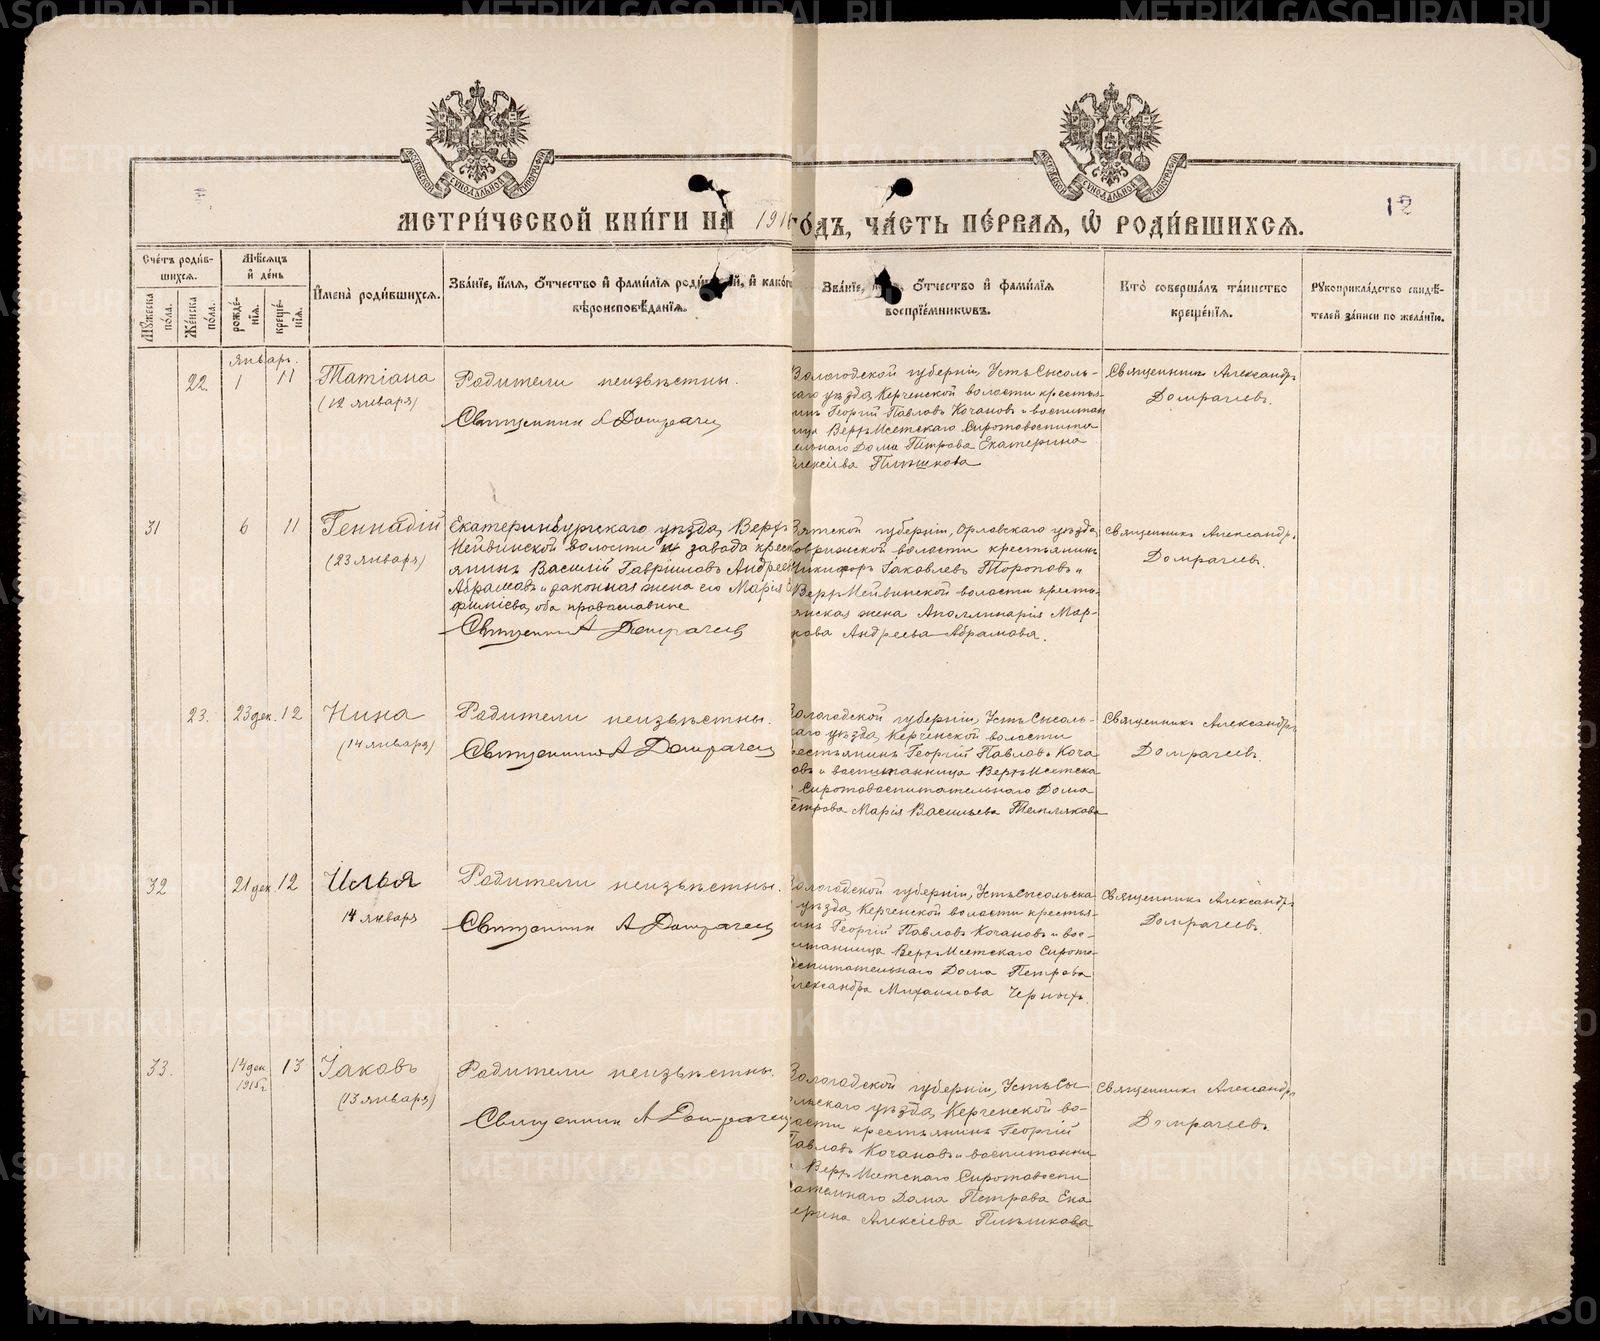 МЕТРИ́ЧЕСКОЙ КНИ́ГИ НА 1916 ГО́ДЪ, ЧА́СТЬ ПЕ́РВАЯ, Ѽ РОДИ́ВШИХСЯ.
12
Сче́тъ роди́в-
шихся.
Мꙋ́жеска по́ла.
Же́нска по́ла.
Мѣ́сяцъ и де́нь
рожде́-
нїя.
креще́-
нїя.
Имена̀ роди́вшихся.
Зва́нїе, и́мя, ѻ́тчество и фами́лїя роди́телей, и како́гѡ
вѣроисповѣ́данїя.
Зва́нїе, и́мя, ѻ́тчество и фами́лїя
воспрїе́мникѡвъ.
Кто̀ соверша́лъ та́инство
креще́нїя.
Рꙋкоприкла́дство свидѣ́-
телей за́писи по жела́нїю.
Январь.
22 1 11 Татіана
(12 января)
Родители неизвѣстны.
Священникъ А Домрачевъ
Вологодской губерніи, Усть Сысоль-
скаго уѣзда, Керченской волости крестья-
нинъ Георгій Павловъ Кочановъ и воспитан
ница Верхъ Исетскаго Сиротовоспита
тельнаго Дома Петрова Екатерина
Алексіева Плѣшкова
Священникъ Александръ
Домрачевъ.
31 6 11 Геннадій
(23 января)
Екатеринбургскаго уѣзда, Верхъ
Нейвинской волости и завода крест
янинъ Василій Гавріиловъ Андреев
Абрамовъ и законная жена его Марія
филіева, оба православные
Священникъ А Домрачевъ
Вятской губерніи, Орловскаго уѣзда,
волости крестьянинъ
Никифоръ Іаковлевъ Тороповъ и
Верхъ Нейвинской волости кресть-
янская жена Аполлинарія Мар-
кова Андреева-Абрамова.
Священникъ Александръ
Домрачевъ.
23. 23 дек. 12 Нина
(14 января)
Родители неизвѣстны.
Священникъ А Домрачевъ
Вологодской губерніи, Усть Сысоль-
скаго уѣзда, Керченской волости
крестьянинъ Георгій Павловъ Коча-
новъ и воспитанница Верхъ Исетска
Сиротовоспитательнаго Дома
Петрова Марія Васильева Теплякова
Священникъ Александръ
Домрачевъ.
32 21 дек 12 Илья
14 января
Родители неизвѣстны.
Священникъ А Домрачевъ
Вологодской губерніи, Усть Сысольска
уѣзда, Керченской волости крестья-
нинъ Георгій Павловъ Кочановъ и вос-
питанница Верхъ Исетскаго Сирото-
воспитательнаго Дома Петрова
Александра Михаилова Черныхъ.
Священникъ Александръ
Домрачевъ.
33. 14 дек 13 Іаковъ
1915 г.
(13 января)
Родители неизвѣстны.
Священникъ А Домрачевъ
Вологодской губерніи, Усть Сы
сольскаго уѣзда, Керченской во-
лости крестьянинъ Георгій
Павловъ Кочановъ и воспитанни
Верхъ Исетскаго Сиротовоспи
тательнаго Дома Петрова Ека
терина Алексіева Плѣшкова
Священникъ Александръ
Домрачевъ.
METRIKI.GASO-URAL.RU